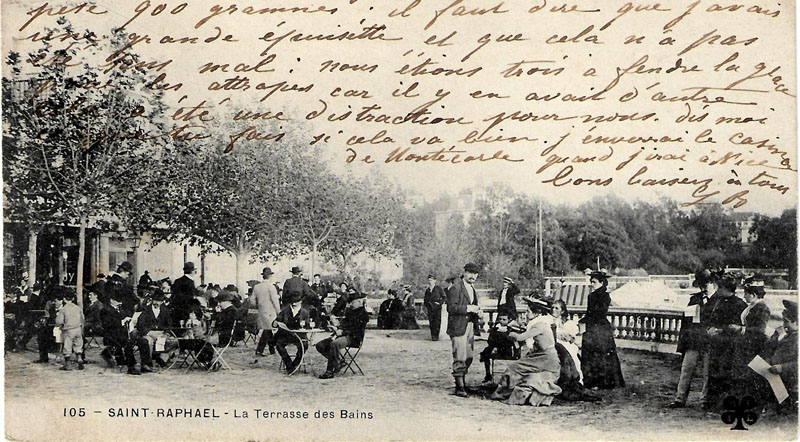 pèse 900 grammes. il faut dire que j'avais
une grande épuisette et que cela n'a pas
été sans mal. nous étions trois a fendre la glace
les attraper car il y en avait d'autre
a été une distraction pour nous. dis moi
tu fais si cela va bien. j'enverrai le casino
de Montécarle quand j'irai à Nice
bons baisers à tous
105 - SAINT-RAPHAEL - La Terrasse des Bains